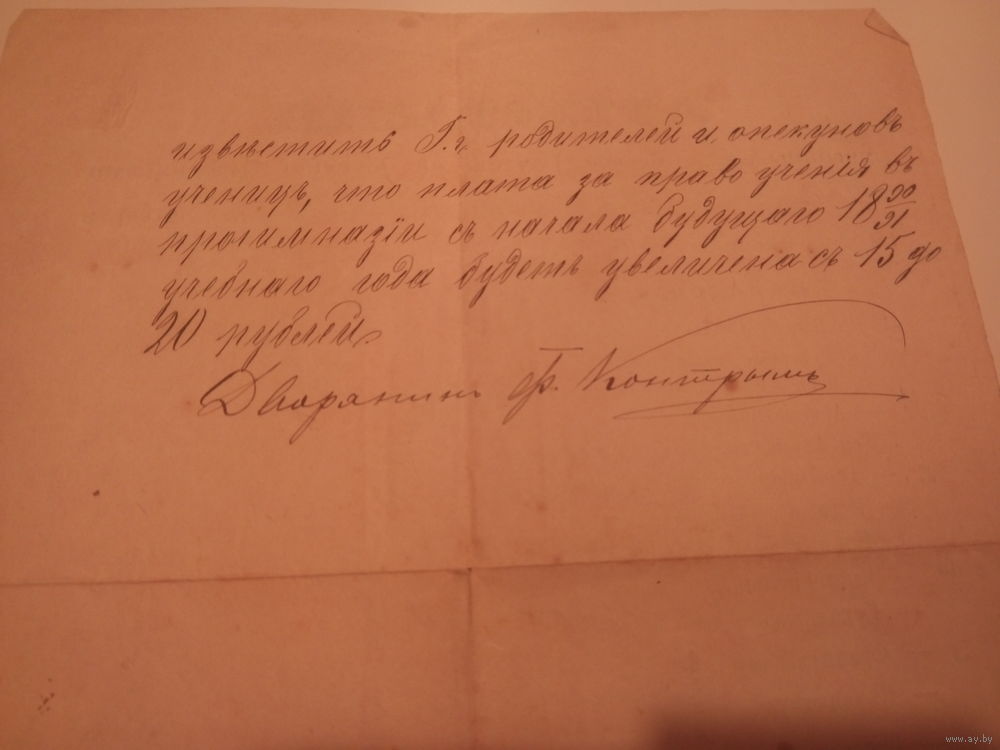 извѣстить Г.г. родителей и опекуновъ
ученицъ, что плата за право ученія въ
прогимназіи съ начала будущаго 18 90/91
учебнаго года будетъ увеличена съ 15 до
20 рублей.
Дворянинъ Ф. Контрымъ
www.ay.by